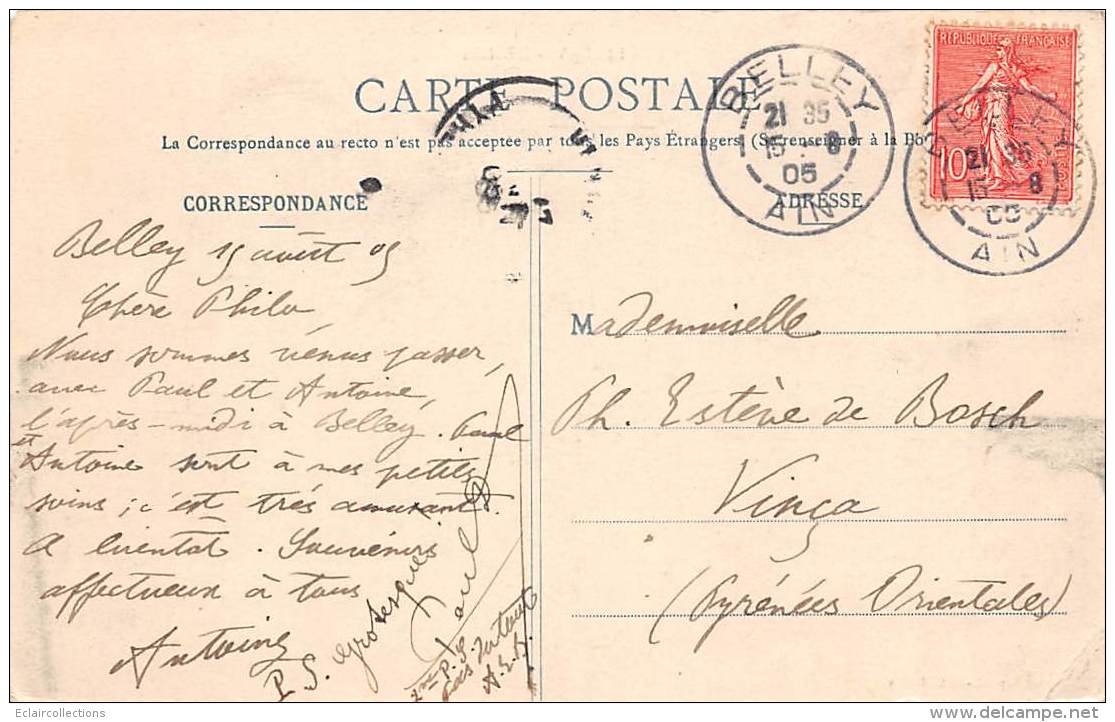 CARTE POSTALE
La Correspondance au recto n'est pas acceptée par tous les Pays Étrangers (Se renseigner à la Po
CORRESPONDANCE
ADRESSE
BELLEY
21 35
15 - 8
05
AIN
REPUBLIQUE FRANÇAISE
10
BELLEY
21 35
15 - 8
05
AIN
Belley 15 août 05
Chère Philo,
Nous sommes venus passer,
avec Paul et Antoine,
l'après-midi à Belley. Paul
et Antoine sont à mes petits
soins ; c'est très amusant.
A bientôt. Souvenirs
affectueux à tous
Antoine
P.S. grotesque
Paul
2me P.S.
pas du tout
A.E.B.
Mademoiselle
Ph. Estève de Bosch
Vinça
(Pyrénées Orientales)
Eclaircollections
www.delcampe.net